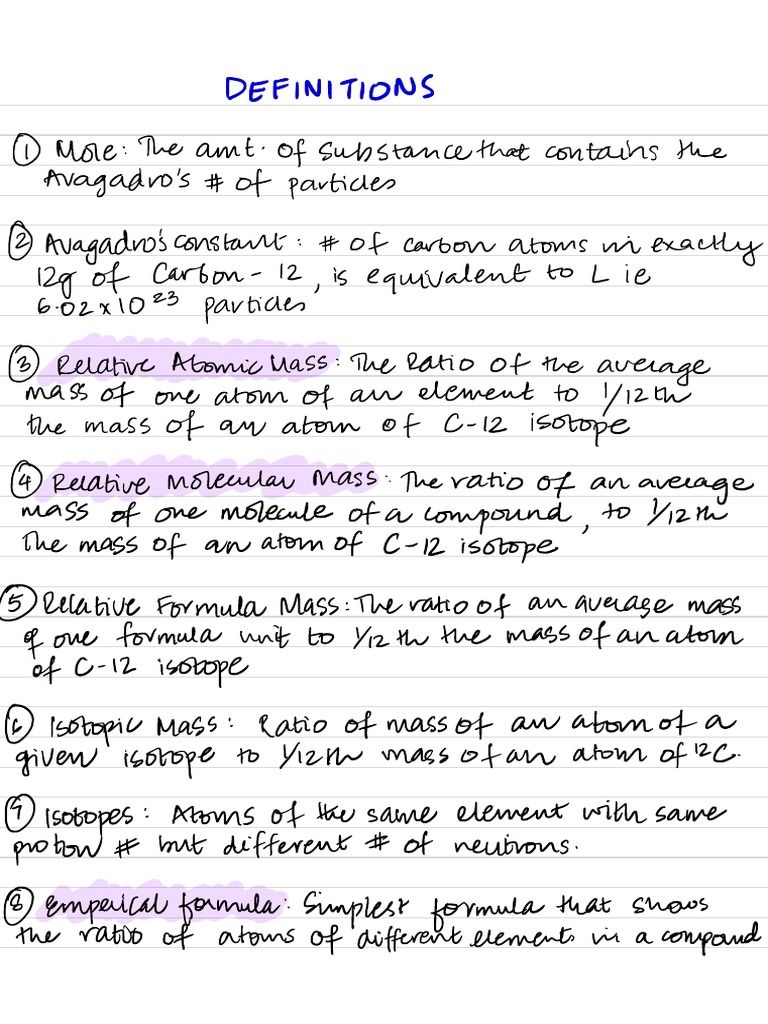 DEFINITIONS
① Mole: The amt. of substance that contains the
Avagadro's # of particles
② Avagadro's constant: # of carbon atoms in exactly
12g of Carbon-12, is equivalent to L ie
6.02x10²³ particles
③ Relative Atomic Mass: The Ratio of the average
mass of one atom of an element to 1/12th
the mass of an atom of C-12 isotope
④ Relative Molecular Mass: The ratio of an average
mass of one molecule of a compound, to 1/12th
the mass of an atom of C-12 isotope
⑤ Relative Formula Mass: The ratio of an average mass
of one formula unit to 1/12th the mass of an atom
of C-12 isotope
⑥ Isotopic Mass: Ratio of mass of an atom of a
given isotope to 1/12th mass of an atom of ¹²C.
⑦ Isotopes: Atoms of the same element with same
proton # but different # of neutrons.
⑧ Emperical formula: Simplest formula that shows
the ratio of atoms of different elements in a compound